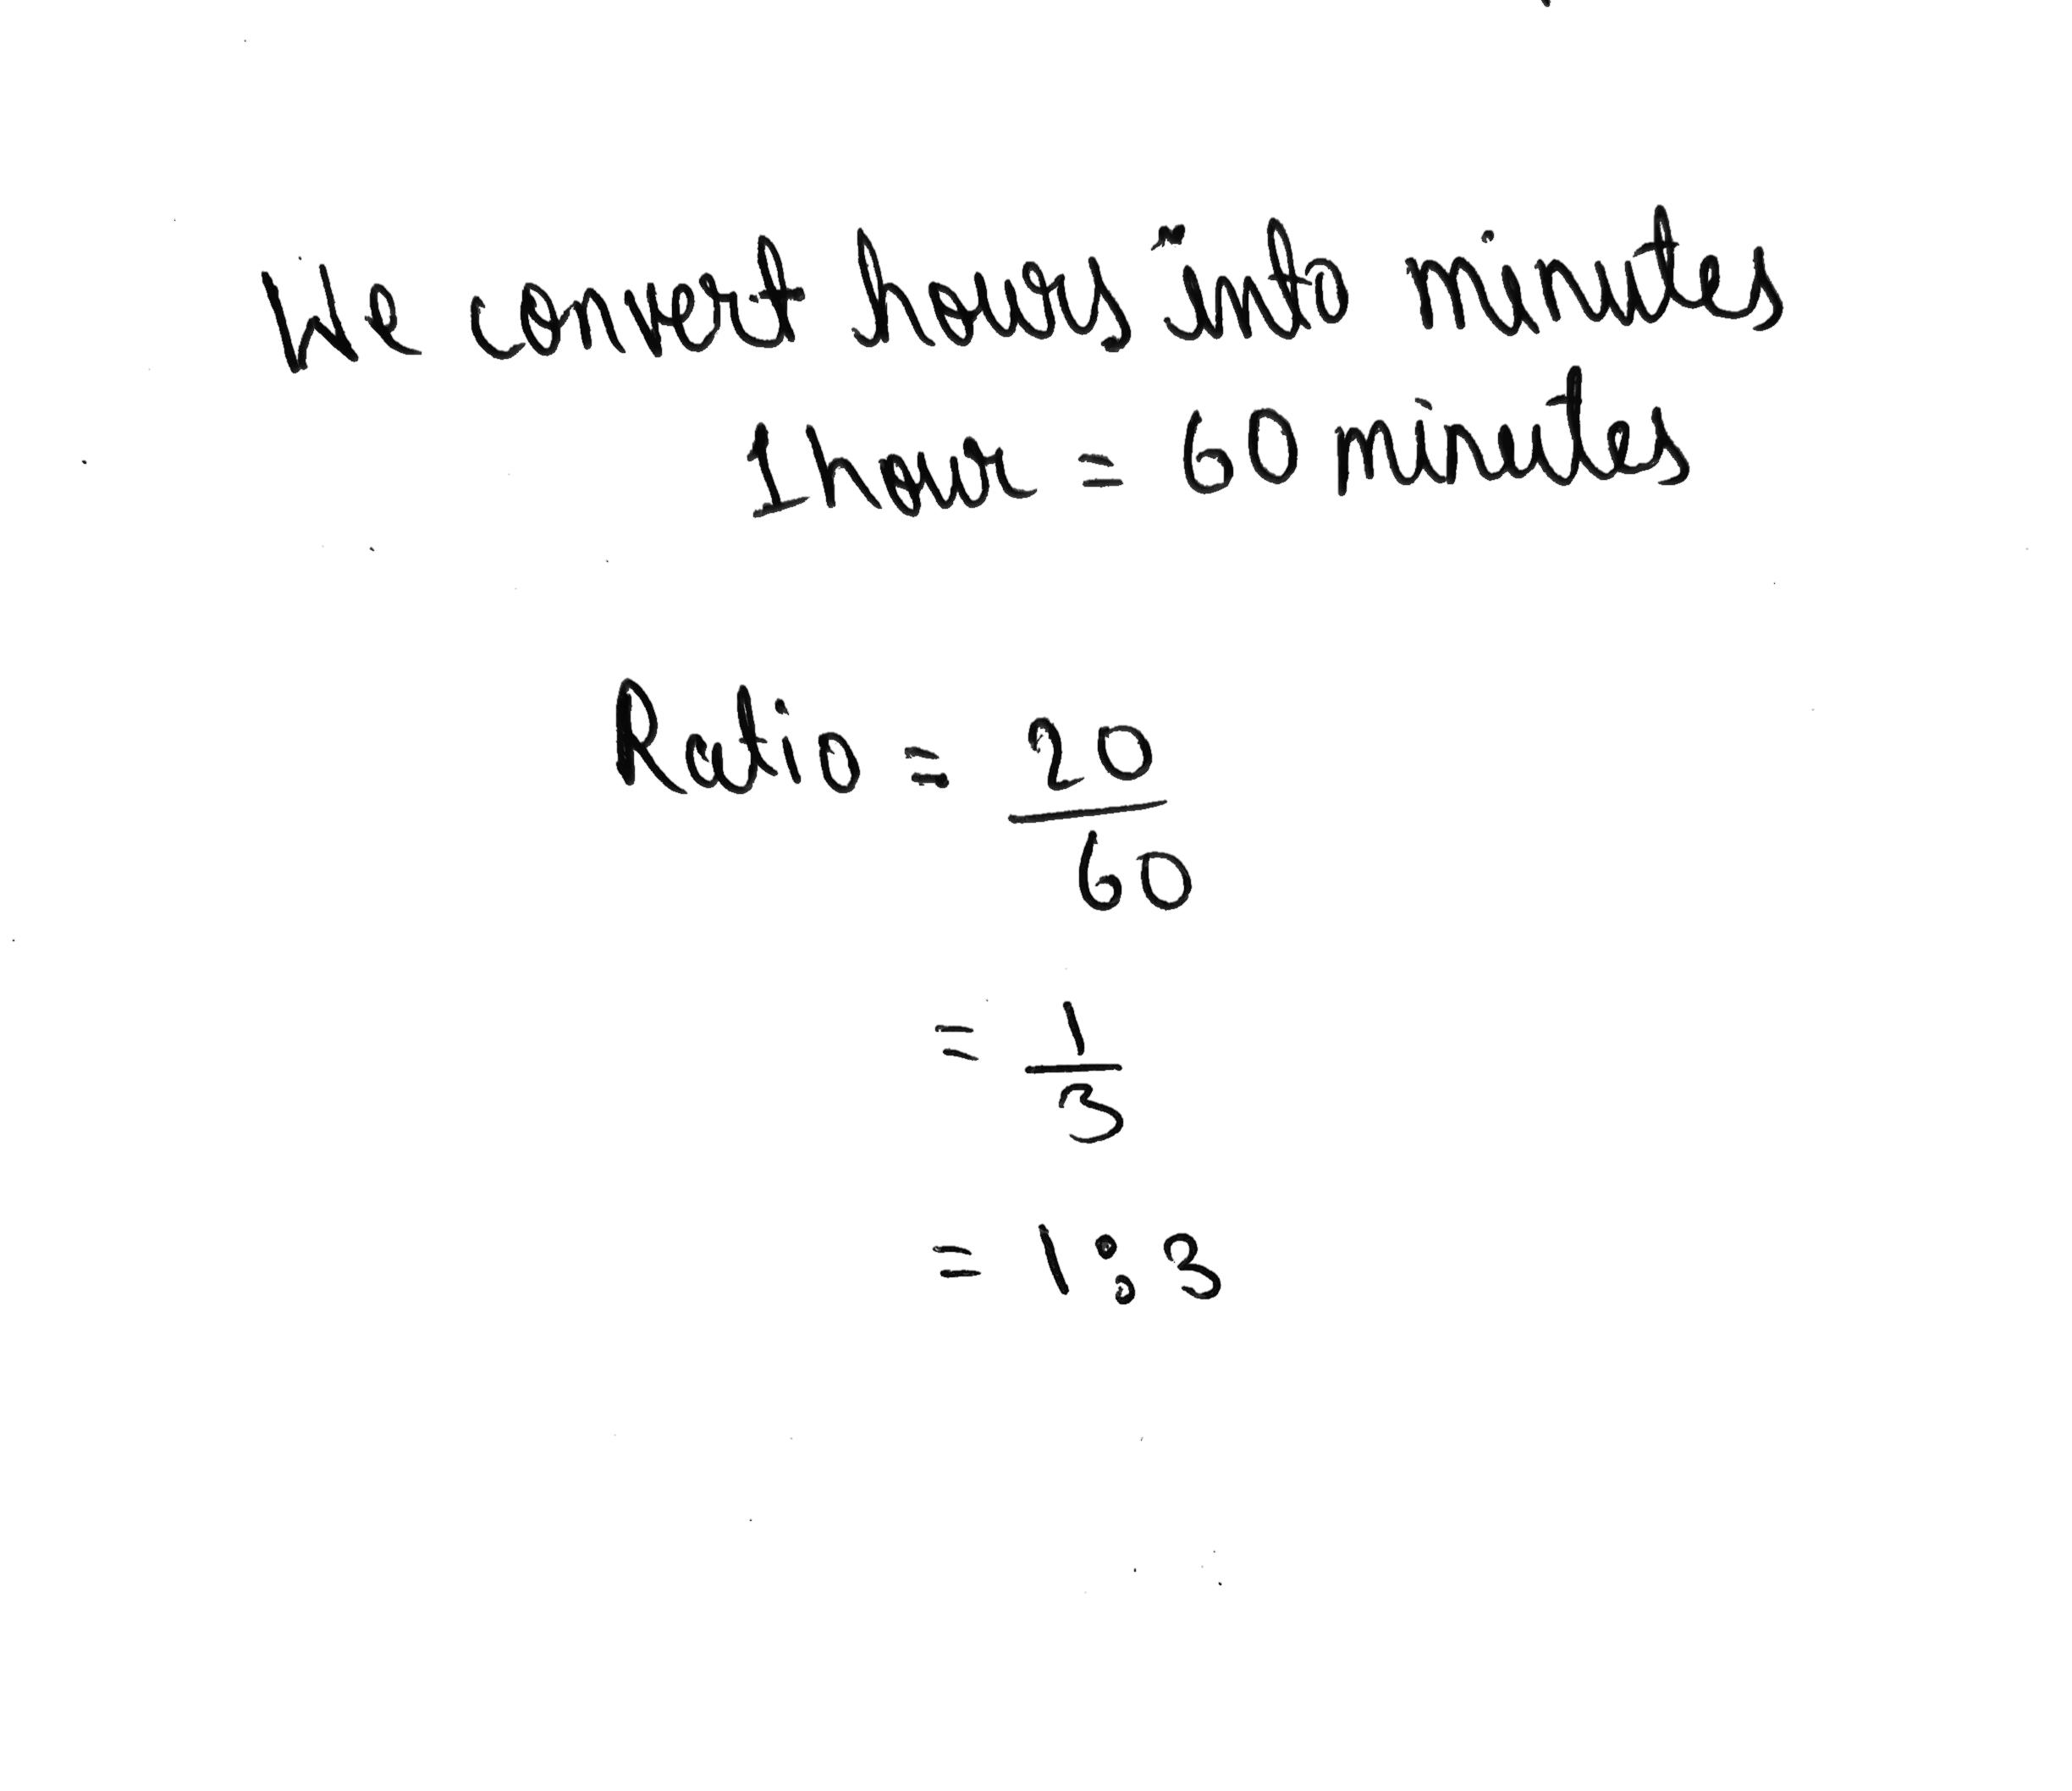 We convert hours into minutes
1 hour = 60 minutes
Ratio = 20/60
= 1/3
= 1:3